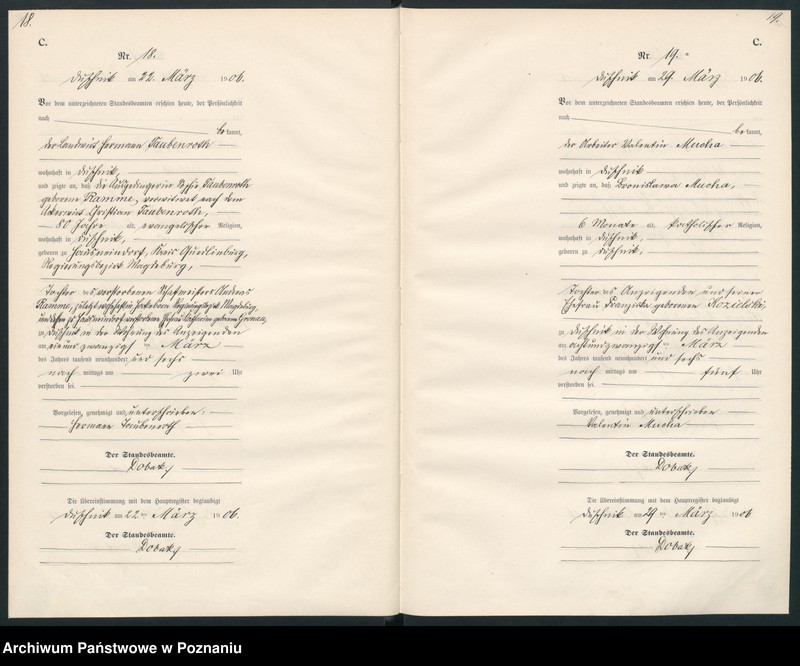 18.
C.
Nr. 18.
Duschnik am 22. März 1906.
Vor dem unterzeichneten Standesbeamten erschien heute, der Persönlichkeit
nach
be kannt,
der Landwirt Hermann Taubenroth
wohnhaft in Duschnik,
und zeigte an, daß die Ausgedingerin Sophie Taubenroth
geborene Ramme, verwitwet nach dem
Ackerwirt Christian Taubenroth,
80 Jahre alt, evangelischer Religion,
wohnhaft in Duschnik,
geboren zu Hausneindorf, Kreis Quedlinburg,
Regierungsbezirk Magdeburg,
Tochter des verstorbenen Schafmeisters Andreas
Ramme, zuletzt wohnhaft in Regierungsbezirk Magdeburg,
und dessen zu Hausneindorf verstorbenen Ehefrau geborene
zu Duschnik in der Wohnung des Anzeigenden
am einundzwanzigsten März
des Jahres tausend neunhundert und sechs
nach mittags um zwei Uhr
verstorben sei.
Vorgelesen, genehmigt und unterschrieben:
Hermann Taubenroth
Der Standesbeamte.
Die Übereinstimmung mit dem Hauptregister beglaubigt
Duschnik am 22ten März 1906.
Der Standesbeamte.
19.
C.
Nr. 19.
Duschnik am 29. März 1906.
Vor dem unterzeichneten Standesbeamten erschien heute, der Persönlichkeit
nach
be kannt,
der Arbeiter Valentin Mucha
wohnhaft in Duschnik
und zeigte an, daß Bronislawa Mucha,
6 Monate alt, katholischer Religion,
wohnhaft in Duschnik,
geboren zu Duschnik,
Tochter des Anzeigenden und seiner
Ehefrau Franziska geborenen Kozielski,
zu Duschnik in der Wohnung des Anzeigenden
am achtundzwanzigsten März
des Jahres tausend neunhundert und sechs
nach mittags um fünf Uhr
verstorben sei.
Vorgelesen, genehmigt und unterschrieben
Valentin Mucha
Der Standesbeamte.
Die Übereinstimmung mit dem Hauptregister beglaubigt
Duschnik am 29ten März 1906
Der Standesbeamte.
Archiwum Państwowe w Poznaniu